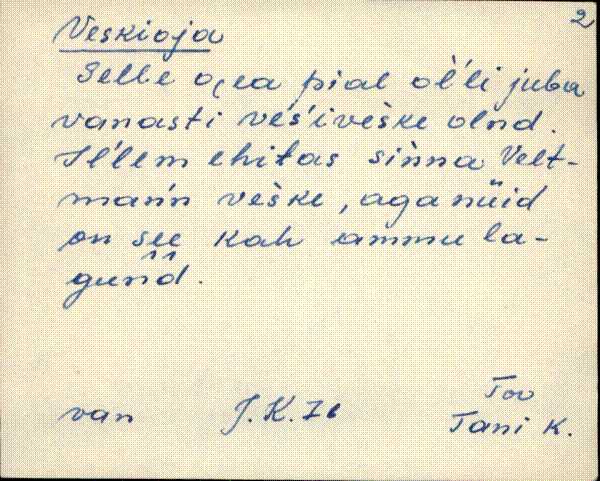 2
Veskioja
Selle ojea pial oĺli juba
vanasti veśiveske olnd.
Illem ehitas sinna Velt-
mańn veske, aga nüid
on see kah ammu la-
gund.
van J.K. 76 Tov
Tani K.